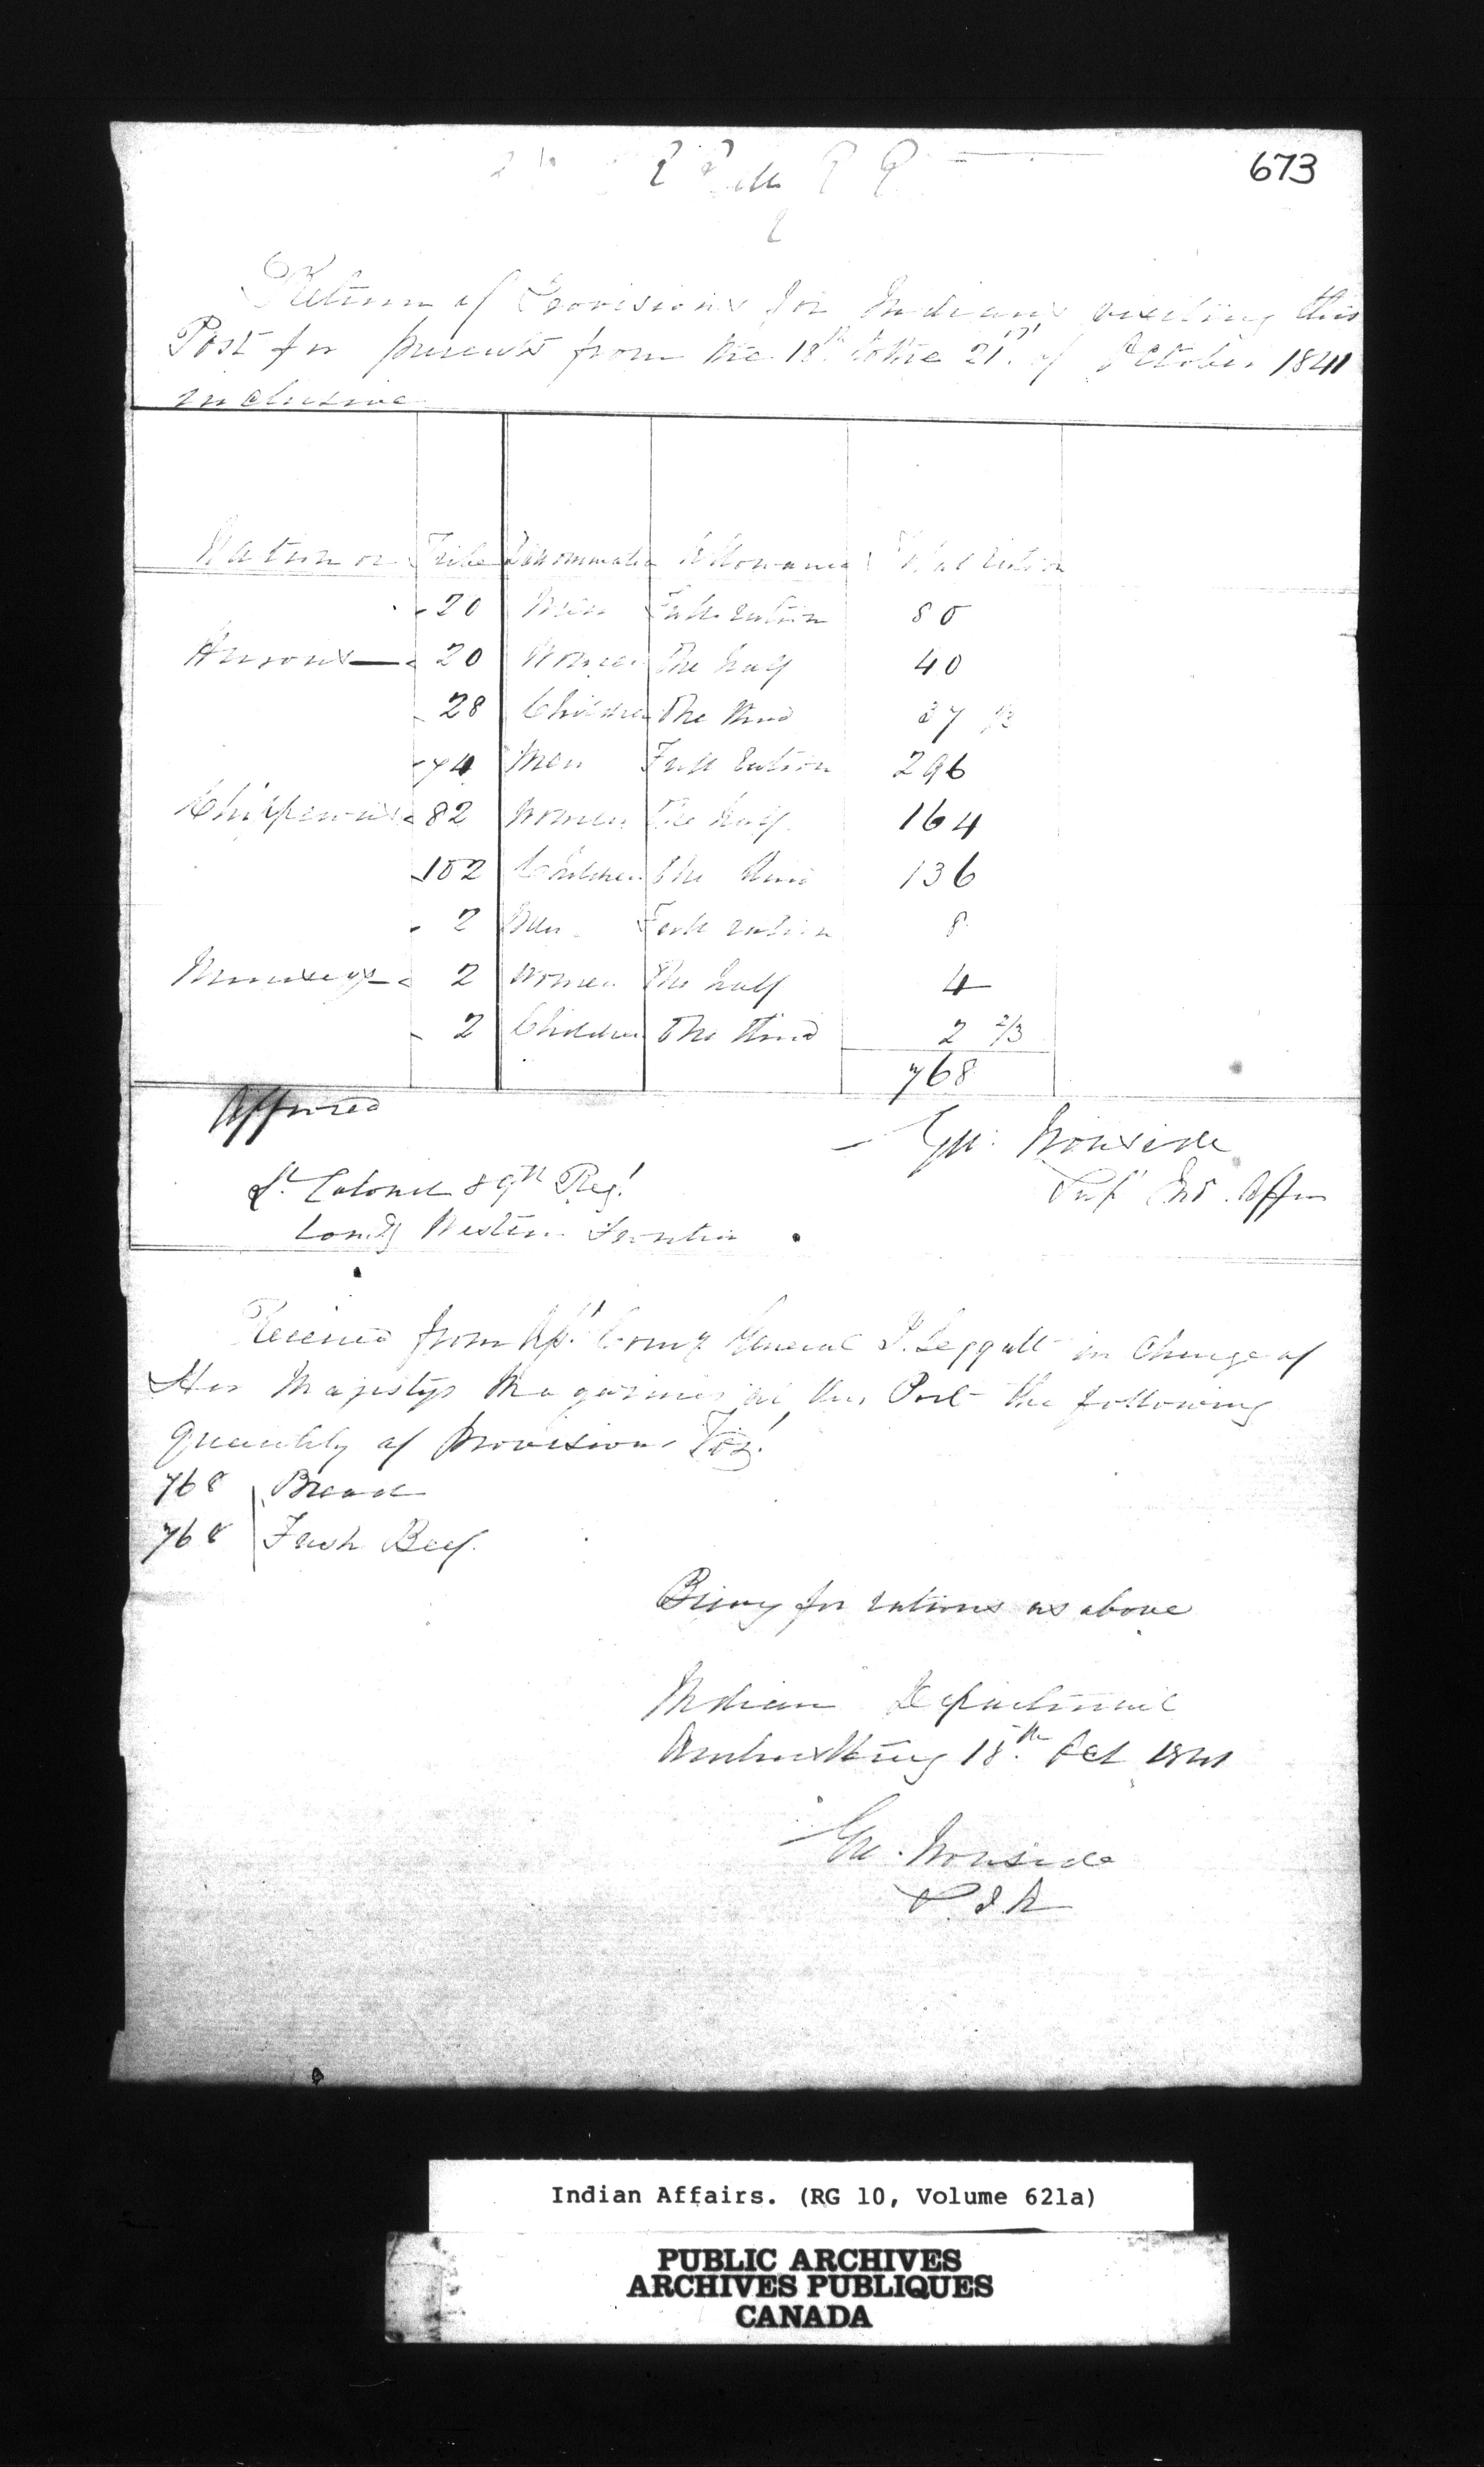 673
Return of Provisions for Indians visiting this
Post for presents from the 18th to the 21st of October 1841
inclusive
Nation or Tribe Denomination Allowance Total rations
20 Men Full ration 80
Hurons 20 Women The half 40
28 Children The third 37 1/3
74 Men Full ration 296
Chippewas 82 Women The half 164
102 Children The third 136
2 Men Full ration 8
Munseys 2 Women The half 4
2 Children The third 2 2/3
768
Approved
Geo: Ironside
Supt Ind. Affrs
Lt. Colonel 89th Regt
Comdg Western Frontier
Received from Comy General J. Leggatt in charge of
Her Majestys Magazines at this Post the following
quantity of provisions Viz!
768 Bread
768 Fresh Beef
Being for rations as above
Indian Department
Amherstburg 18th Oct 1841
Geo. Ironside
S. I. A
Indian Affairs. (RG 10, Volume 621a)
PUBLIC ARCHIVES
ARCHIVES PUBLIQUES
CANADA